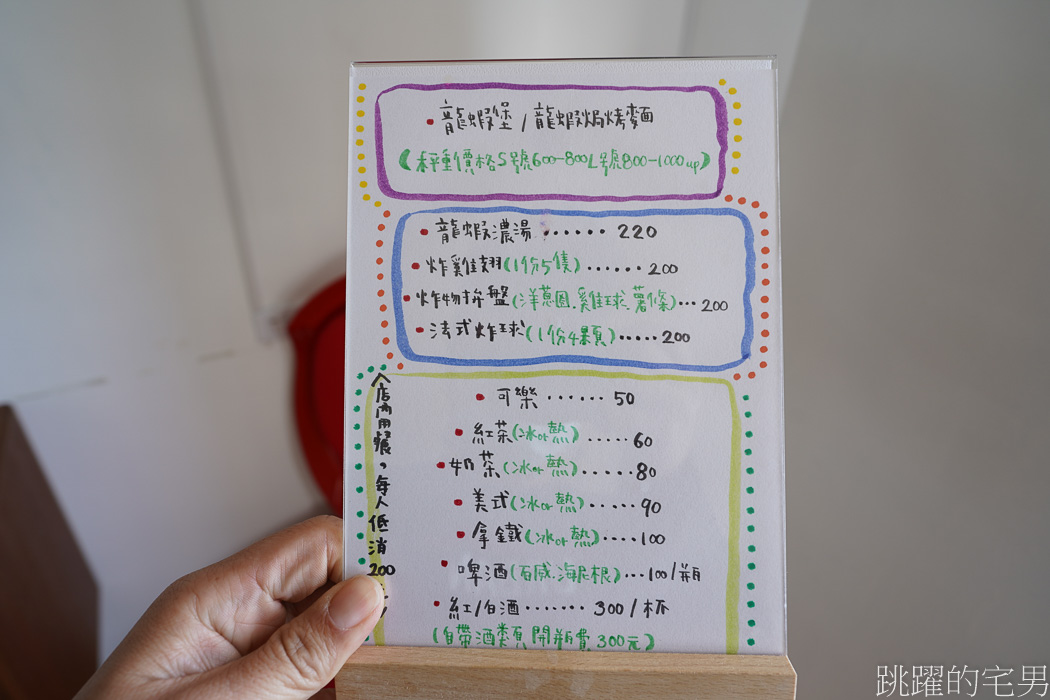 •龍蝦堡/龍蝦焗烤麵
(秤重價格S號600-800L號800-1000up)
•龍蝦濃湯......220
•炸雞翅(1份5隻)......200
•炸物拚盤(洋蔥圈.雞球.薯條)...200
•法式炸球(1份4顆).....200
•可樂......50
•紅茶(冰or熱).....60
•奶茶(冰or熱).....80
•美式(冰or熱).....90
•拿鐵(冰or熱)....100
•啤酒(百威.海尼根)...100/瓶
•紅/白酒.......300/杯
(自帶酒類開瓶費300元)
店內用餐,每人低消200
跳躍的宅男